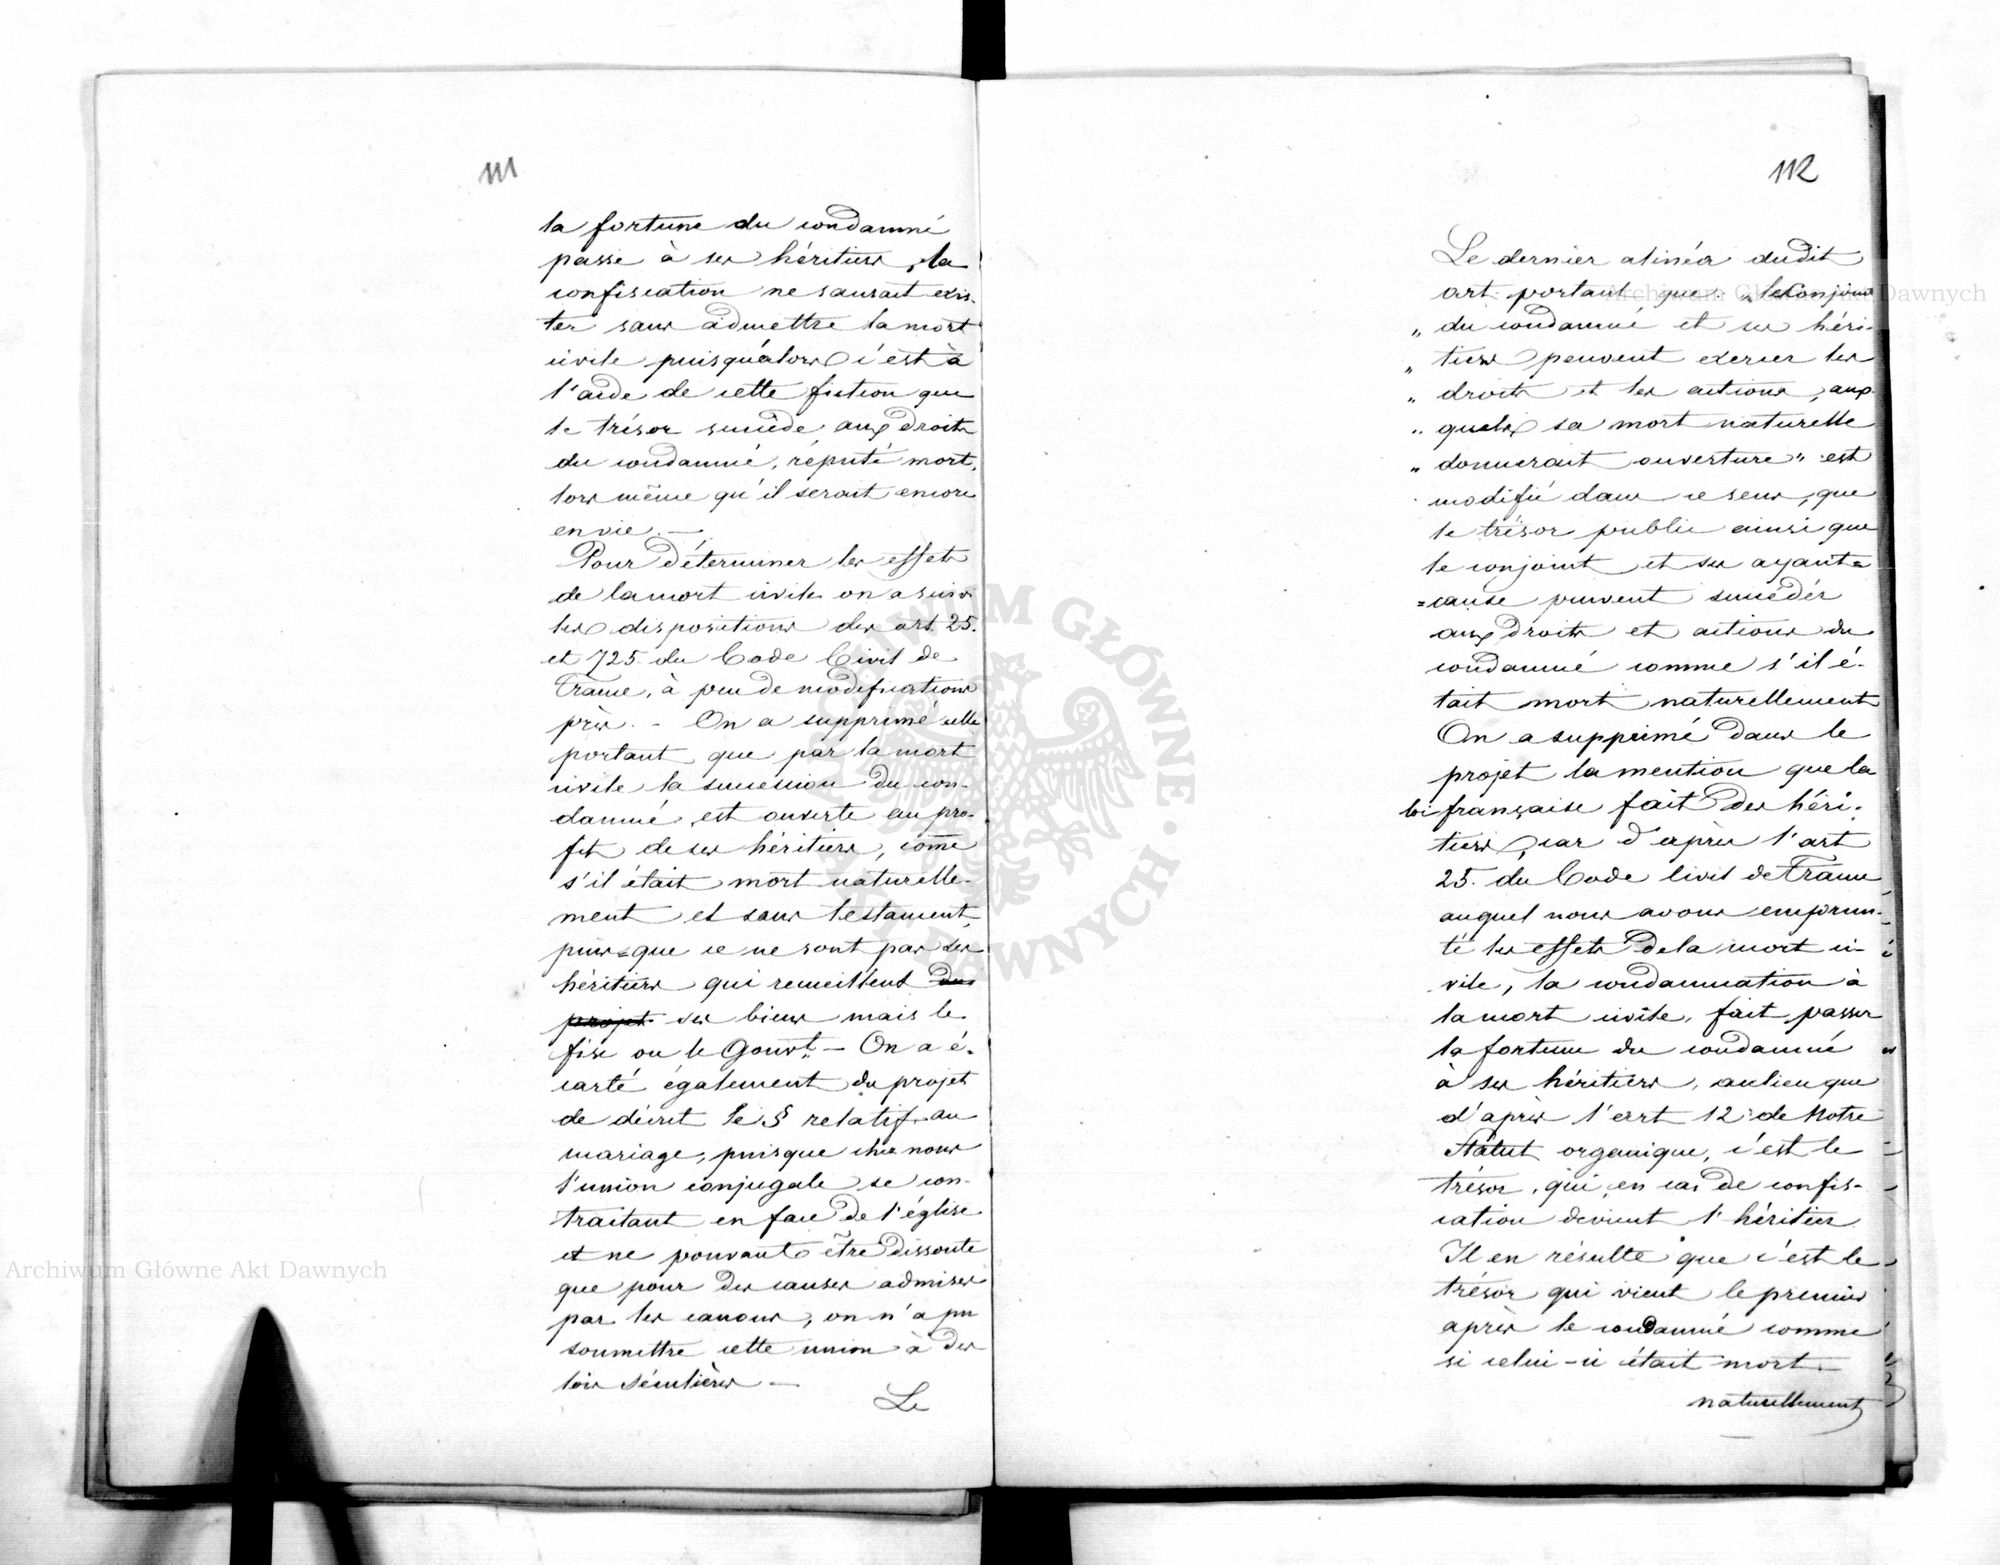 111
la fortune du condamné
passe à ses héritiers, la
confiscation ne saurait exis-
ter sans admettre la mort
civile puisqu'alors c'est à
l'aide de cette fiction que
le trésor succède aux droits
du condamné, réputé mort,
lors même qu'il serait encore
en vie. —
Pour déterminer les effets
de la mort civile on a suivi
les dispositions des art. 25.
et 725. du Code Civil de
France, à peu de modifications
près. - On a supprimé celle
portant que par la mort
civile la succession du con-
damné est ouverte au pro-
fit de ses héritiers, come
s'il était mort naturelle-
ment et sans testament,
puis=que ce ne sont pas ses
héritiers qui recueillent du
projet ses biens mais le
fisc ou le Gouvt. — On a é-
carté également du projet
de décret le § relatif au
mariage, puisque chez nous
l'union conjugale se con-
tractant en face de l'église
et ne pouvant être dissoute
que pour des causes admises
par les canons, on n'a pu
soumettre cette union à des
lois séculières —
Le
112
Le dernier alinéa dudit
art. portant que: „le Conjoint
„ du condamné et ses héri-
„ tiers peuvent exercer les
„ droits et les actions, aux-
„ quels sa mort naturelle
„ donnerait ouverture" est
modifié dans ce sens, que
le trésor public ainsi que
le conjoint et ses ayant=
=cause peuvent succéder
aux droits et actions du
condamné comme s'il é-
tait mort naturellement
On a supprimé dans le
projet la mention que la
loi française fait des héri-
tiers, car d'après l'art
25. du Code Civil de France
auquel nous avons emprun-
té les effets de la mort ci-
vile, la condamnation à
la mort civile, fait passer
la fortune du condamné
à ses héritiers, au lieu que
d'après l'art 12 de Notre
Statut organique, c'est le
trésor, qui en cas de confis-
cation devient l'héritier
Il en résulte que c'est le
trésor qui vient le premier
après le condamné comme
si celui-ci était mort
naturellement
Archiwum Główne Akt Dawnych
Archiwum Główne Akt Dawnych
ARCHIWUM GŁÓWNE · AKT DAWNYCH ·